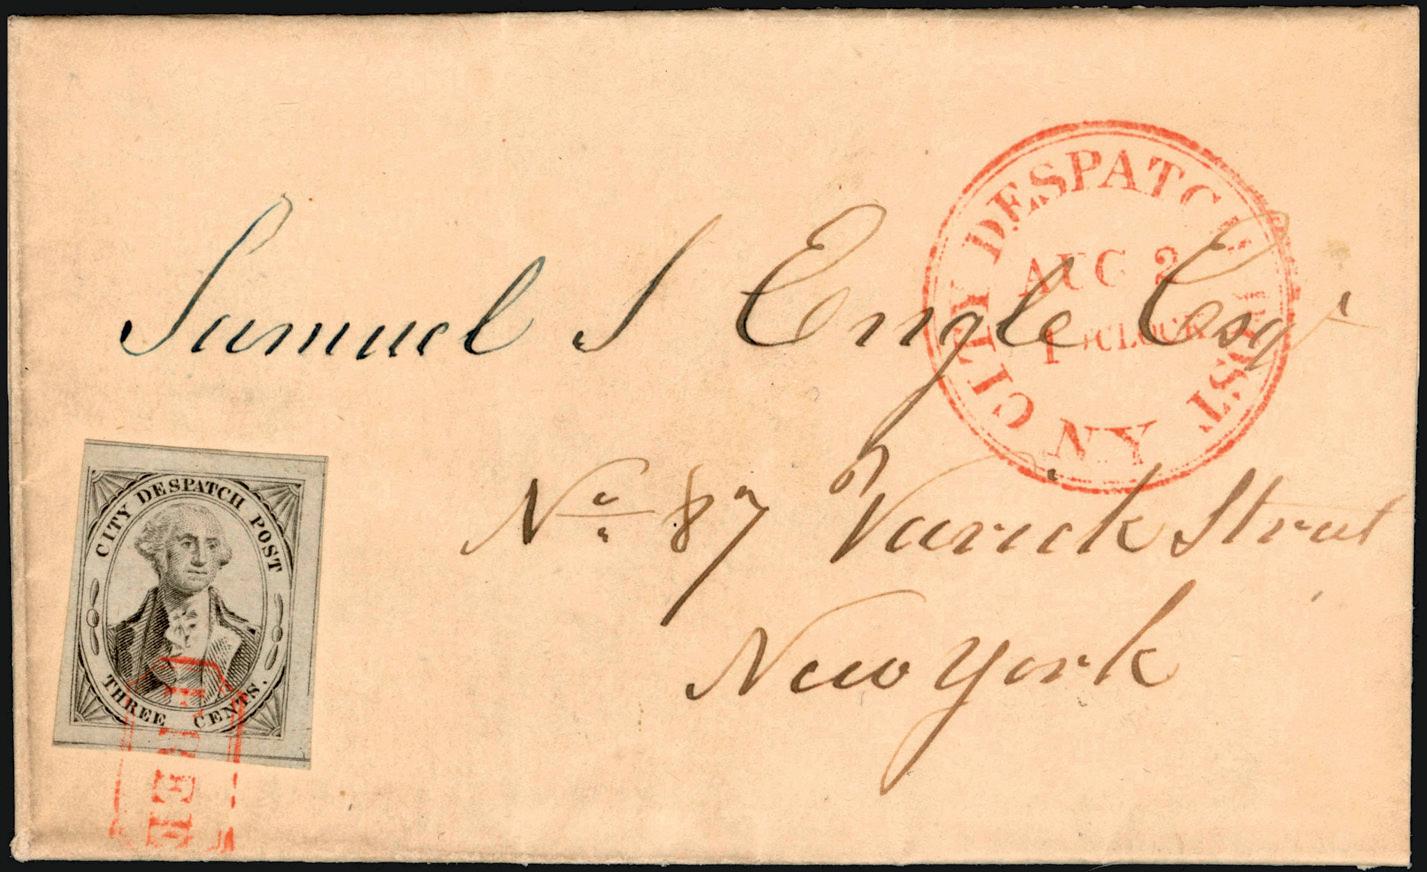 CITY DESPATCH POST
AUG 2
1 O'CLOCK
N.Y.
Samuel S Engle Esqr
No 87 Varick Street
New York
CITY DESPATCH POST
THREE CENTS.
FREE